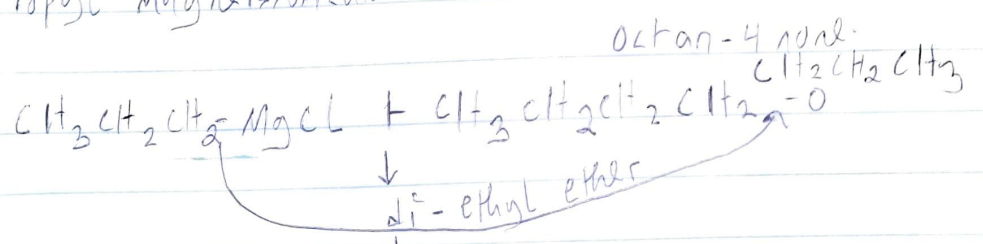 Octan-4 none.
CH2CH2CH3
CH3CH2CH2-MgCl + CH3CH2CH2CH2-O
di-ethyl ether